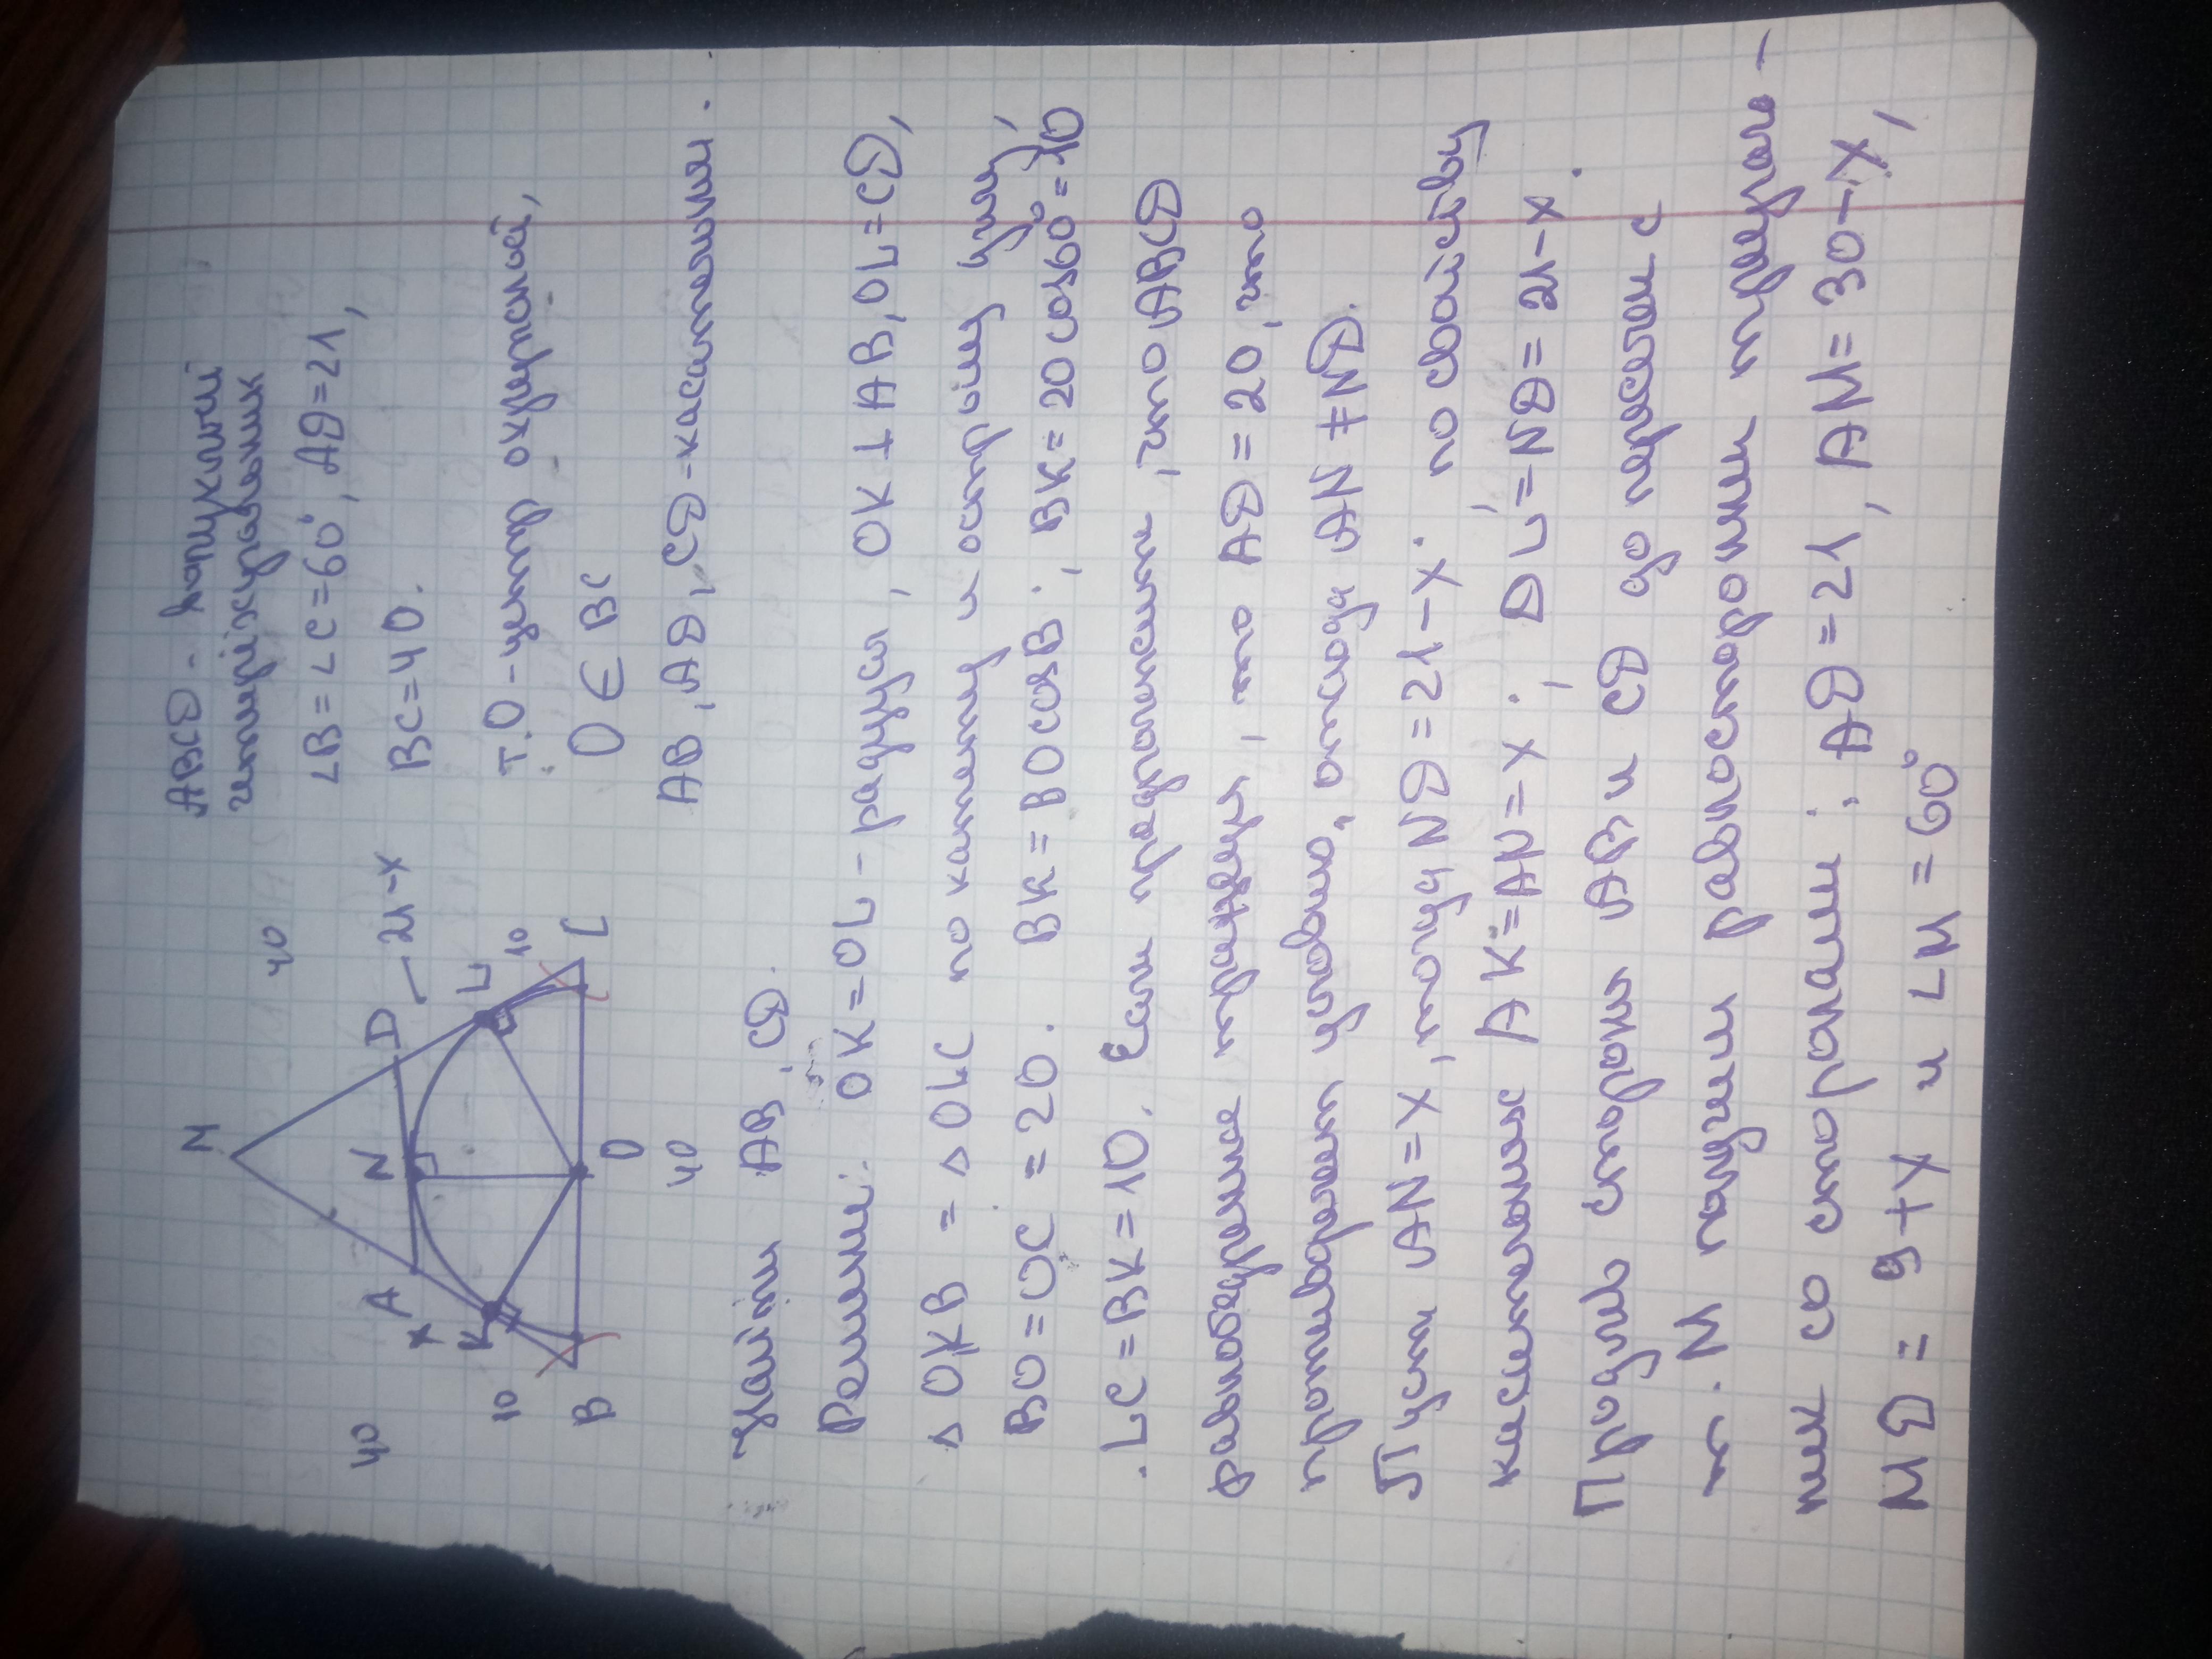 M
40
N
D
21-x
A
x
K
L
40
10
10
B
O
C
40
ABCD - выпуклый
четырёхугольник
∠B=∠C=60°, AD=21,
BC=40.
т.O-центр окружностей,
O ∈ BC
AB, AD, CD-касательные.
Найти AB, CD.
Решение: OK=OL-радиусы, OK⊥AB, OL=CD,
△OKB = △OLC по катету и острому углу,
BO=OC=20. BK=BOcosB; BK=20cos60°=10
. LC=BK=10. Если предположить, что ABCD
равнобедренная трапеция, то AD=20, что
противоречит условию, отсюда AN≠ND.
Пусть AN=x, тогда ND=21-x. По свойству
касательных AK=AN=x; DL=ND=21-x.
Продлив стороны AB и CD до пересечения с
т. M получим равносторонний треуголь-
ник со сторонами: AD=21, AM=30-x,
MD=9+x и ∠M=60°